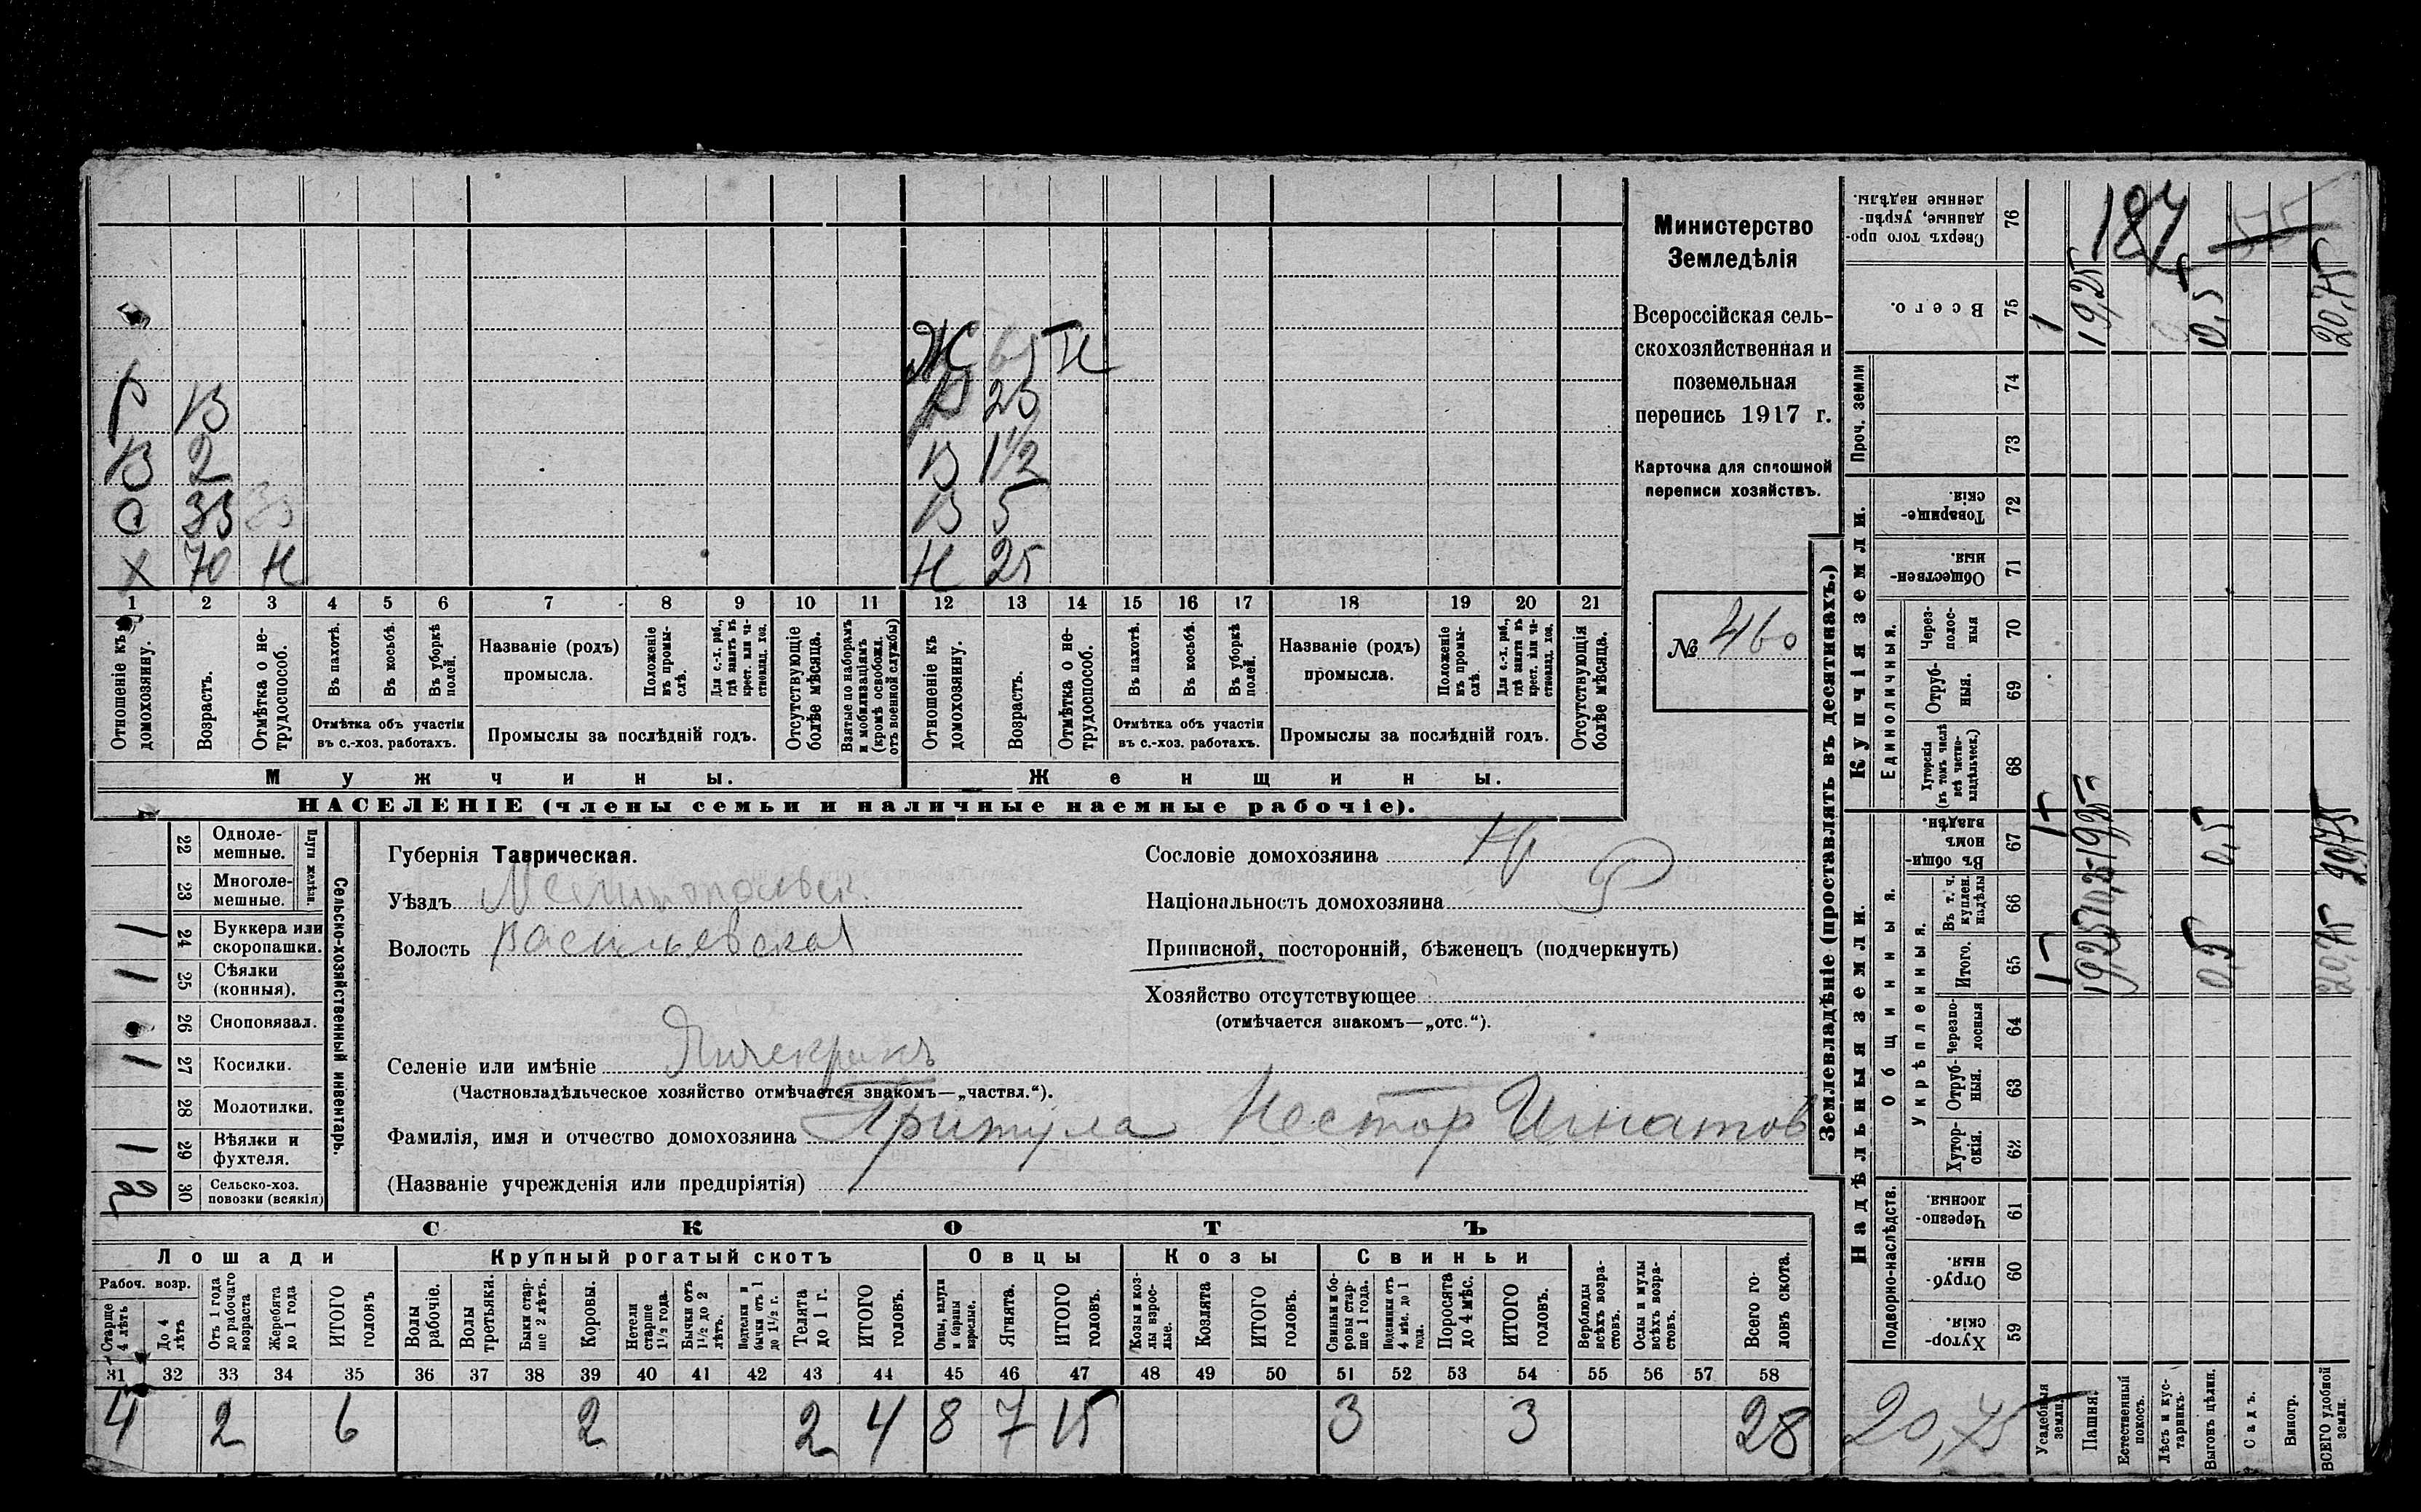 Министерство
Земледѣлія
Всероссійская сель-
скохозяйственная и
поземельная
перепись 1917 г.
Карточка для сплошной
переписи хозяйствъ.
№ 460
Ж 65 Н
Р 13
25
В 2
В 1½
С 33 33
В 5
Х 70 Н
Н 25
1 2 3 4 5 6 7 8 9 10 11 12 13 14 15 16 17 18 19 20 21
Отношеніе къ домохозяину.
Возрастъ.
Отмѣтка о не-трудоспособ.
Въ пахотѣ.
Въ косьбѣ.
Въ уборкѣ полей.
Отмѣтка объ участіи
въ с.-хоз. работахъ.
Названіе (родъ)
промысла.
Положеніе въ промы-слѣ.
Для с.-х. раб., гдѣ занятъ въ крест. или ча-стновлад. хоз.
Промыслы за послѣдній годъ.
Отсутствующіе болѣе мѣсяца.
Взятые по наборамъ и мобилизаціямъ (кромѣ освобожд. отъ военной службы)
Отношеніе къ домохозяину.
Возрастъ.
Отмѣтка о не-трудоспособ.
Въ пахотѣ.
Въ косьбѣ.
Въ уборкѣ полей.
Отмѣтка объ участіи
въ с.-хоз. работахъ.
Названіе (родъ)
промысла.
Положеніе въ промы-слѣ.
Для с.-х. раб., гдѣ занята въ крест. или ча-стновлад. хоз.
Промыслы за послѣдній годъ.
Отсутствующія болѣе мѣсяца.
Мужчины.
Женщины.
НАСЕЛЕНІЕ (члены семьи и наличные наемные рабочіе).
Сельско-хозяйственный инвентарь.
Плуги желѣзн.
22 Одноле-мешные.
23 Многоле-мешные.
1 24 Буккера или скоропашки.
1 25 Сѣялки (конныя).
26 Сноповязал.
1 27 Косилки.
28 Молотилки.
1 29 Вѣялки и фухтеля.
2 30 Сельско-хоз. повозки (всякія)
Губернія Таврическая.
Уѣздъ Мелитопольск.
Волость Васильевская
Сословіе домохозяина Кр
Національность домохозяина Р
Приписной, посторонній, бѣженецъ (подчеркнуть)
Хозяйство отсутствующее
(отмѣчается знакомъ—„отс.“).
Селеніе или имѣніе Янчекракъ
(Частновладѣльческое хозяйство отмѣчается знакомъ—„частвл.“).
Фамилія, имя и отчество домохозяина Притула Нестор Игнатов
(Названіе учрежденія или предпріятія)
СКОТЪ
Лошади
Крупный рогатый скотъ
Овцы
Козы
Свиньи
Рабоч. возр.
Старше 4 лѣтъ
До 4 лѣтъ
Отъ 1 года до рабочаго возраста
Жеребята до 1 года
ИТОГО головъ
Волы рабочіе.
Волы третьяки.
Быки стар-ше 2 лѣтъ.
Коровы.
Нетели старше 1½ года.
Бычки отъ 1½ до 2 лѣтъ.
Подтелки и бычки отъ 1 до 1½ г.
Телята до 1 г.
ИТОГО головъ.
Овцы, валухи и бараны взрослые.
Ягнята.
ИТОГО головъ.
Козы и коз-лы взрос-лые.
Козлята
ИТОГО головъ.
Свиньи и бо-ровы стар-ше 1 года.
Подсвинки отъ 4 мѣс. до 1 года.
Поросята до 4 мѣс.
ИТОГО головъ.
Верблюды всѣхъ возра-стовъ.
Ослы и мулы всѣхъ возра-стовъ.
Всего го-ловъ скота.
31 32 33 34 35 36 37 38 39 40 41 42 43 44 45 46 47 48 49 50 51 52 53 54 55 56 57 58
4 2 6 2 2 4 8 7 15 3 3 28
Землевладѣніе (проставлять въ десятинахъ.)
Надѣльныя земли.
Купчія земли.
Проч. земли
Подворно-наслѣдств.
Общинныя.
Укрѣпленныя.
Единоличныя.
Хутор-скія. 59
Отруб-ныя. 60
Черезпо-лосныя. 61
Хутор-скія. 62
Отруб-ныя. 63
Черезпо-лосныя 64
Итого. 65
Въ т. ч. куплен. надѣлы 66
Въ общин-номъ владѣн. 67
Хуторскія (въ томъ числѣ всѣ частно-владѣльческ.) 68
Отруб-ныя. 69
Через-полос-ныя 70
Обществен-ныя. 71
Товарище-скія. 72
73
74
Всего. 75
Сверхъ того про-данные, укрѣп-ленные надѣлы. 76
Усадебныя земли.
Пашня.
Естественный покосъ.
Лѣсъ и кус-тарникъ.
Выгонъ цѣлин.
Садъ.
Виногр.
ВСЕГО удобной земли.
1 19,25 0,5 20,75
1 19,25 0,5 20,75
1 19,25 0,5 20,75
187
20,75